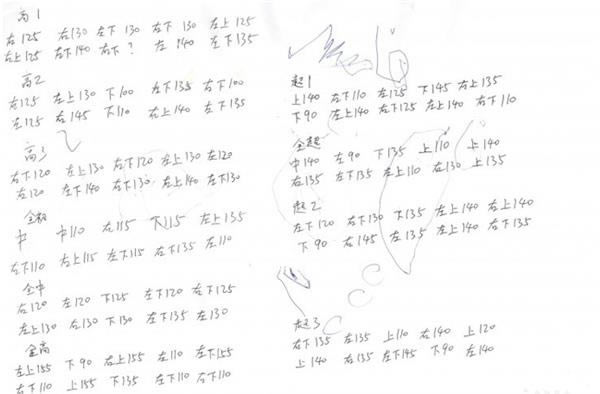 高1
右125 右130 左下130 右下130 左上125
右上125 右下140 右下? 左140 左下135
高2
右125 左上130 下100 左下135 右下100
左125 右145 下110 右上140 左下135
高3
右下120 右上130 右下120 左上130 左120
右120 左下140 右下130 右上140 左下130
全
中 中110 右115 下115 左上135
左下110 右上115 左下115 右下135 左110
全中
右120 左120 下125 左下120 左下125
左上130 右130 下130 左下135 左130
全高
左上155 下90 右上155 左110 左下155
右下110 上155 下135 左下110 右下110
超1
上140 右下110 左125 下145 右上135
下90 左上140 右下125 左上140 右下110
全超
中140 左90 下135 上110 上140
右135 左下135 左上110 右130 上135
超2
左下120 右下130 下135 左上140 右上140
下90 右145 左135 左上140 右下135
超3
右下135 左135 上110 右140 上120
上140 右135 左下145 下90 左140